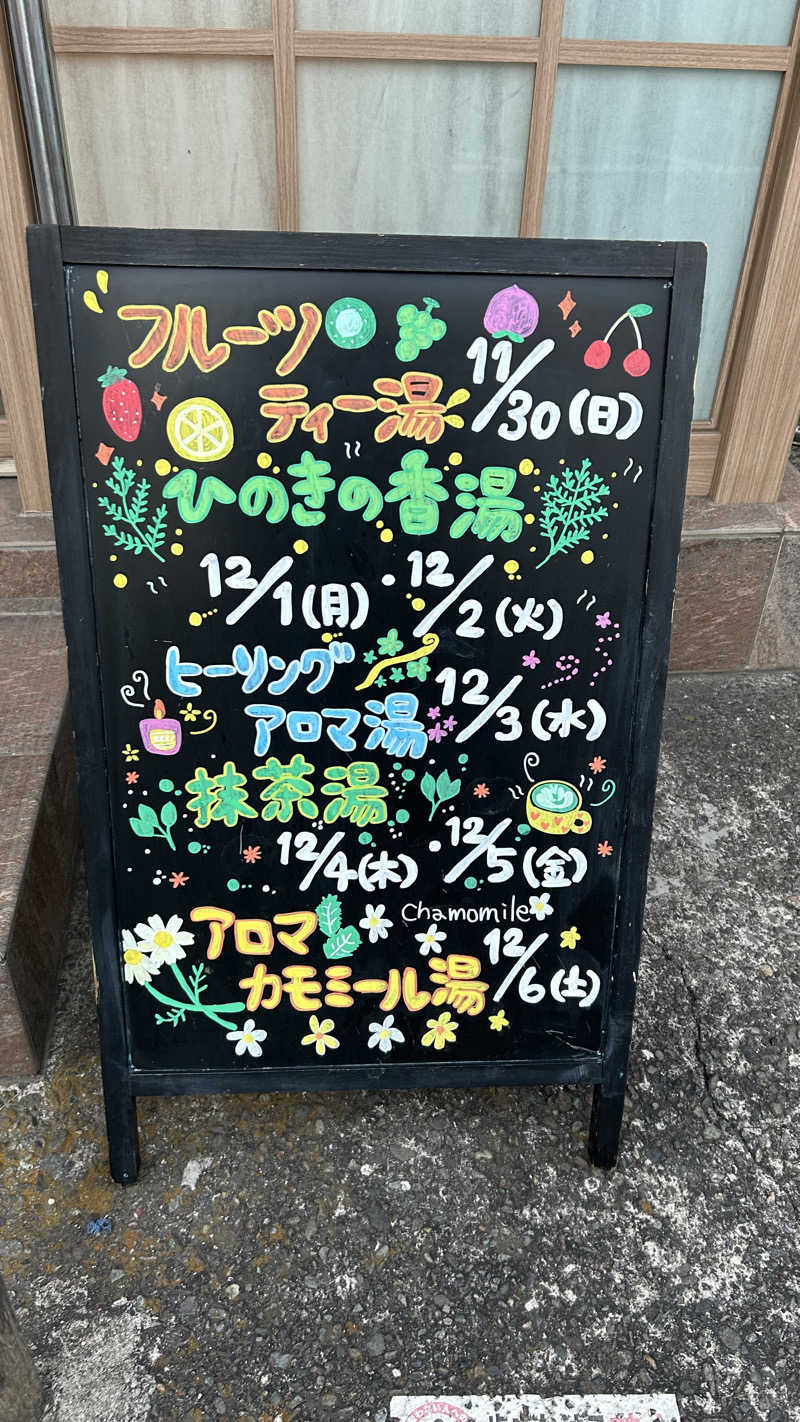 フルーツ
ティー湯 11/30(日)
ひのきの香湯
12/1(月)・12/2(火)
ヒーリング
アロマ湯 12/3(水)
抹茶湯
12/4(木)・12/5(金)
アロマ Chamomile
カモミール湯 12/6(土)